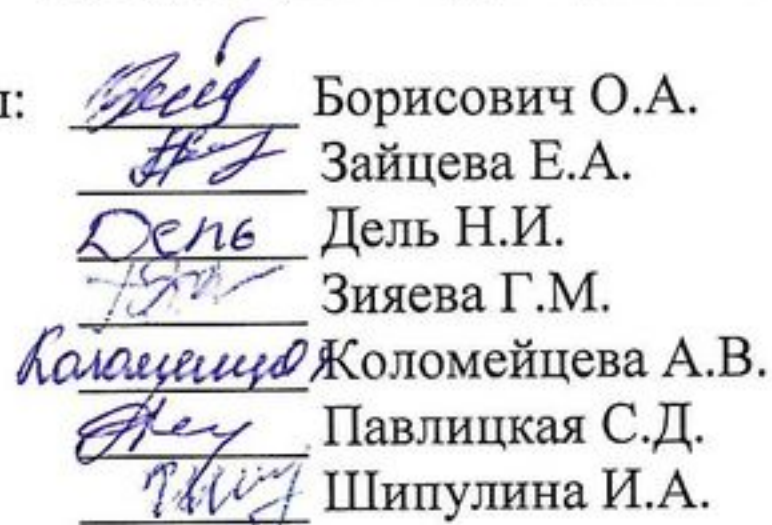 Борисович О.А.
Зайцева Е.А.
Дель Дель Н.И.
Зияева Г.М.
Коломейцева А.В.
Павлицкая С.Д.
Шипулина И.А.